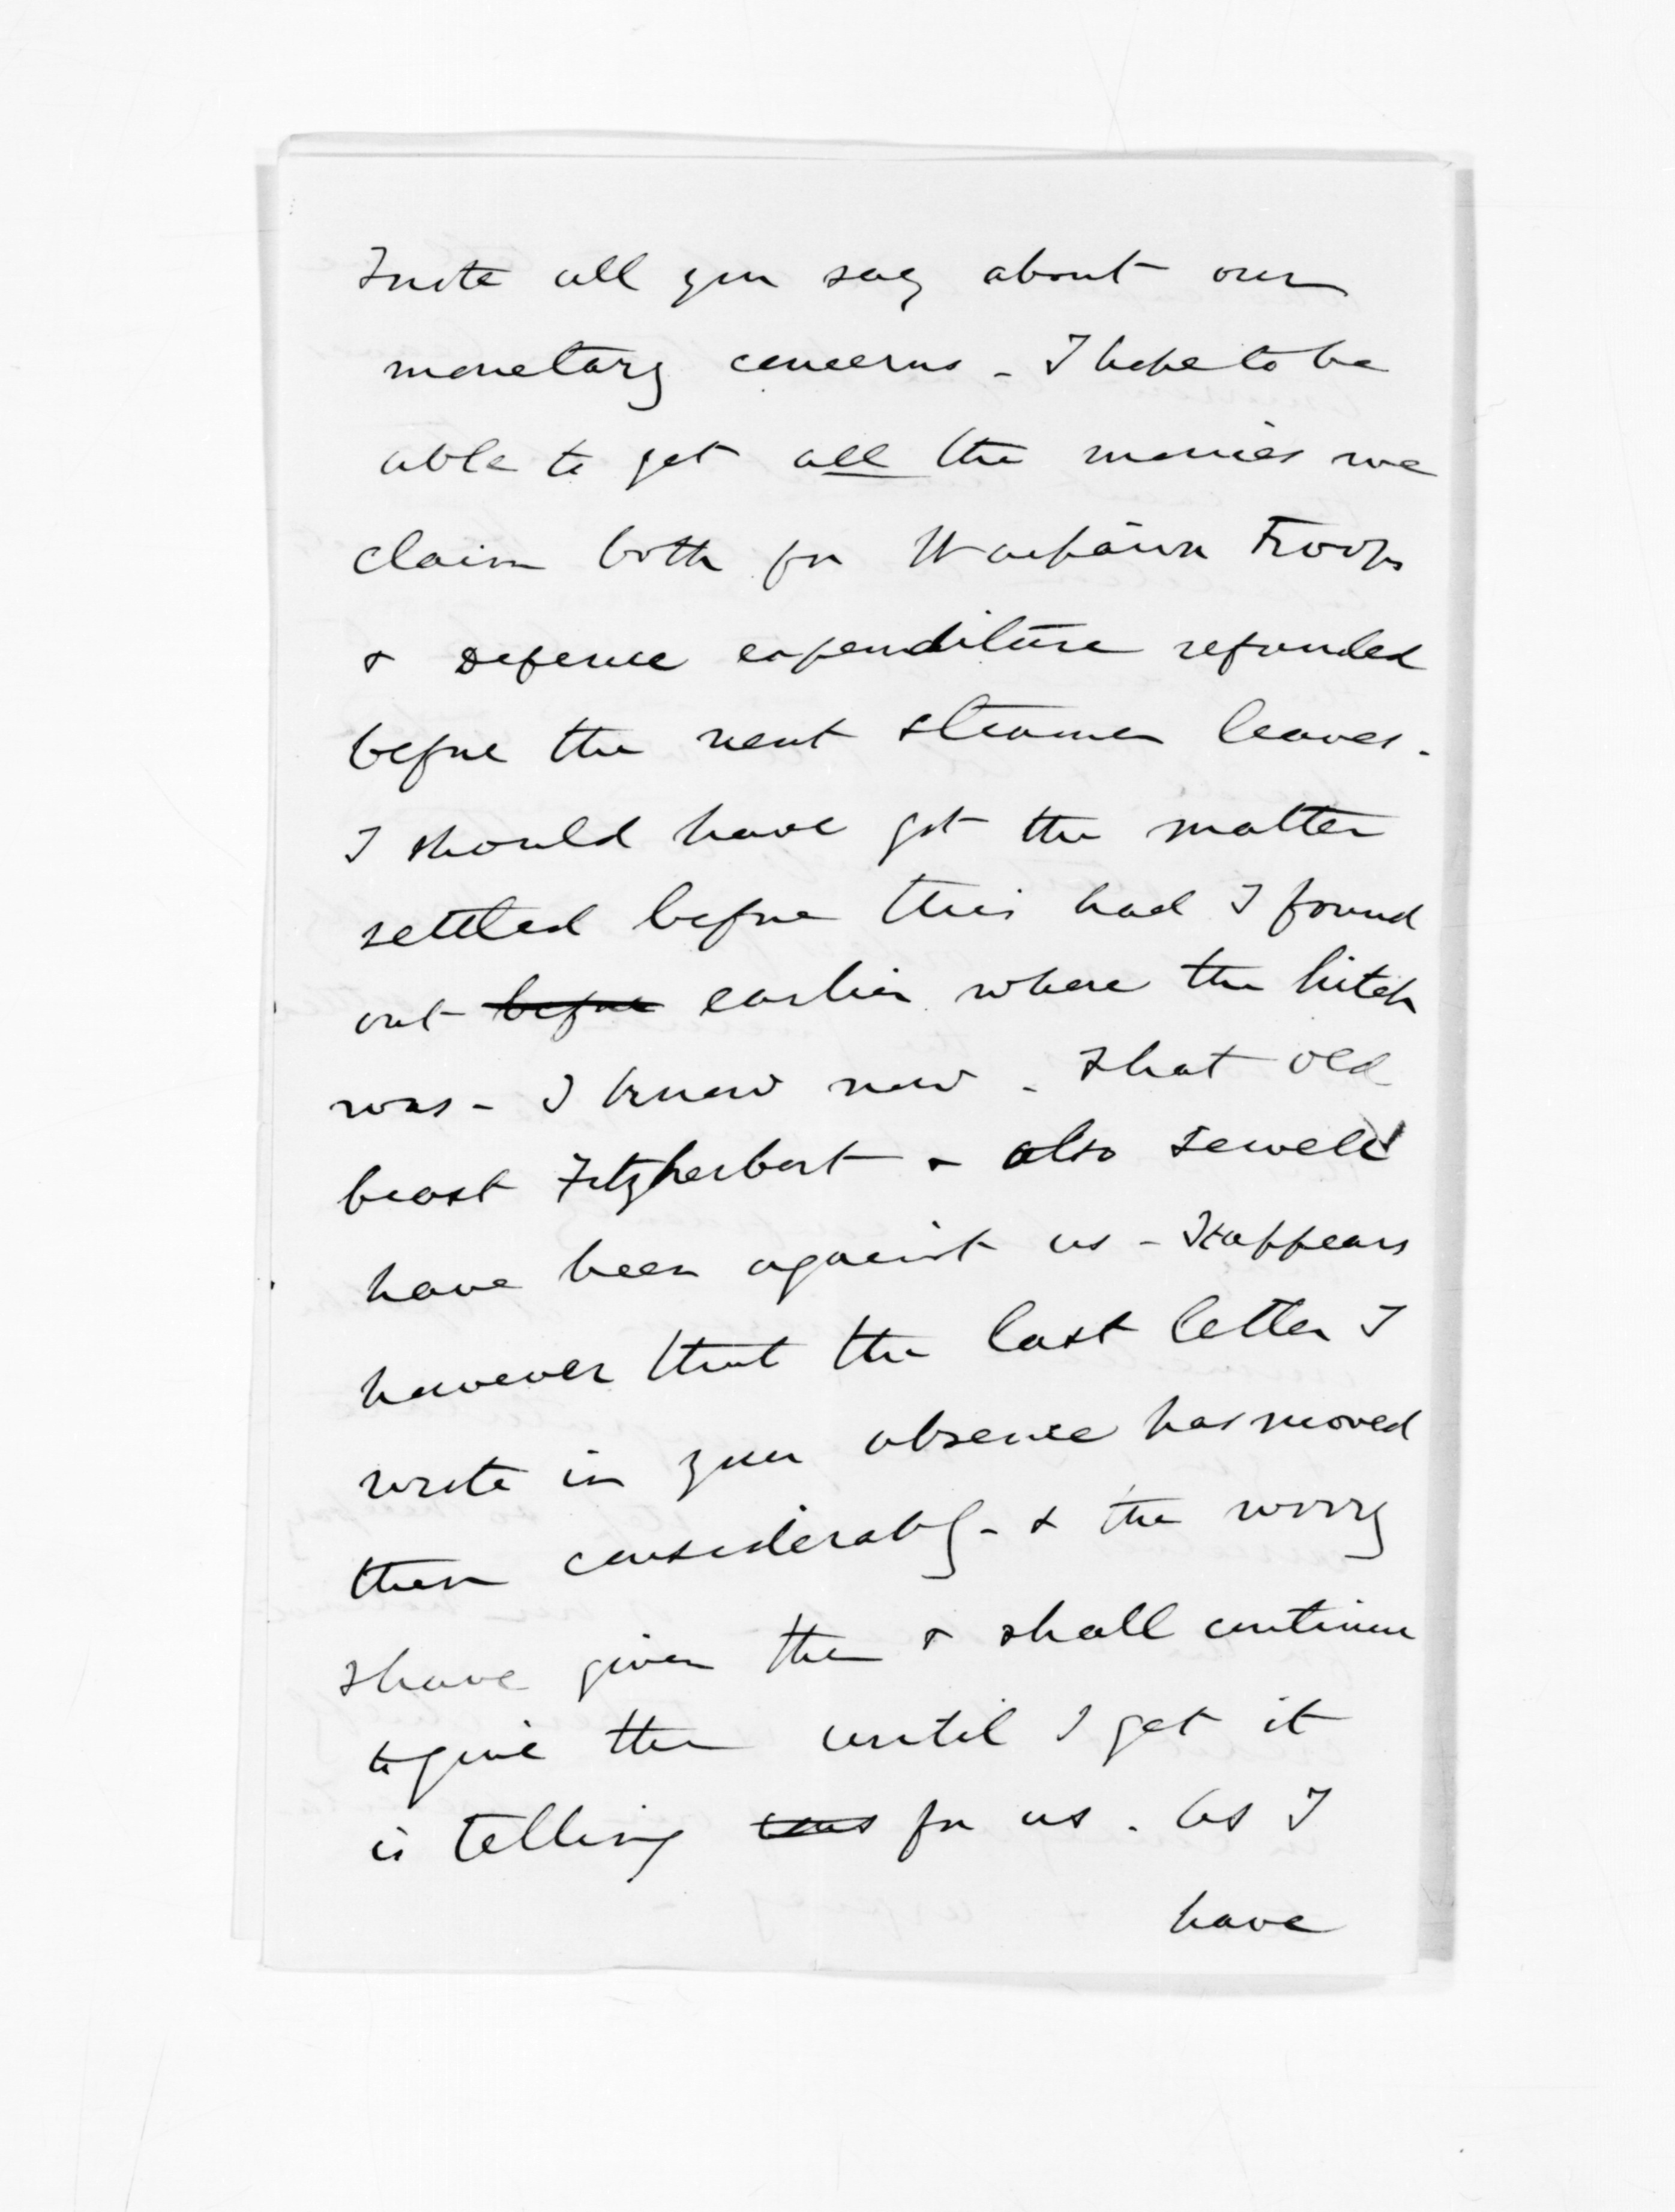 I note all you say about our
monetary concerns - I hope to be
able to get all the monies we
claim both for Waipawa Troops
& Defence expenditure refunded
before the next steamer leaves.
I should have got the matter
settled before this had I found
out before earlier where the hitch
was - I know now - That old
beast Fitzherbert & also Sewell
have been against us - It appears
however that the last letter I
wrote in your absence has moved
them considerably - & the worry
I have given them & shall continue
to give them until I get it
is telling for us. As I
have